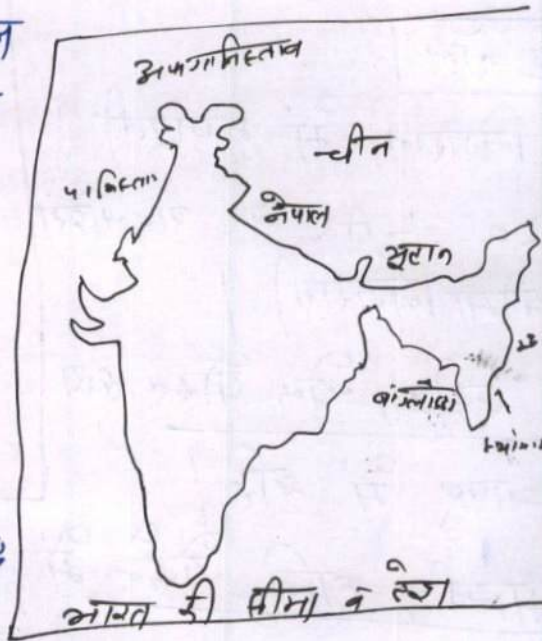 अफगानिस्तान
चीन
पाकिस्तान
नेपाल
भूटान
बांग्लादेश
भारत की सीमा व देश